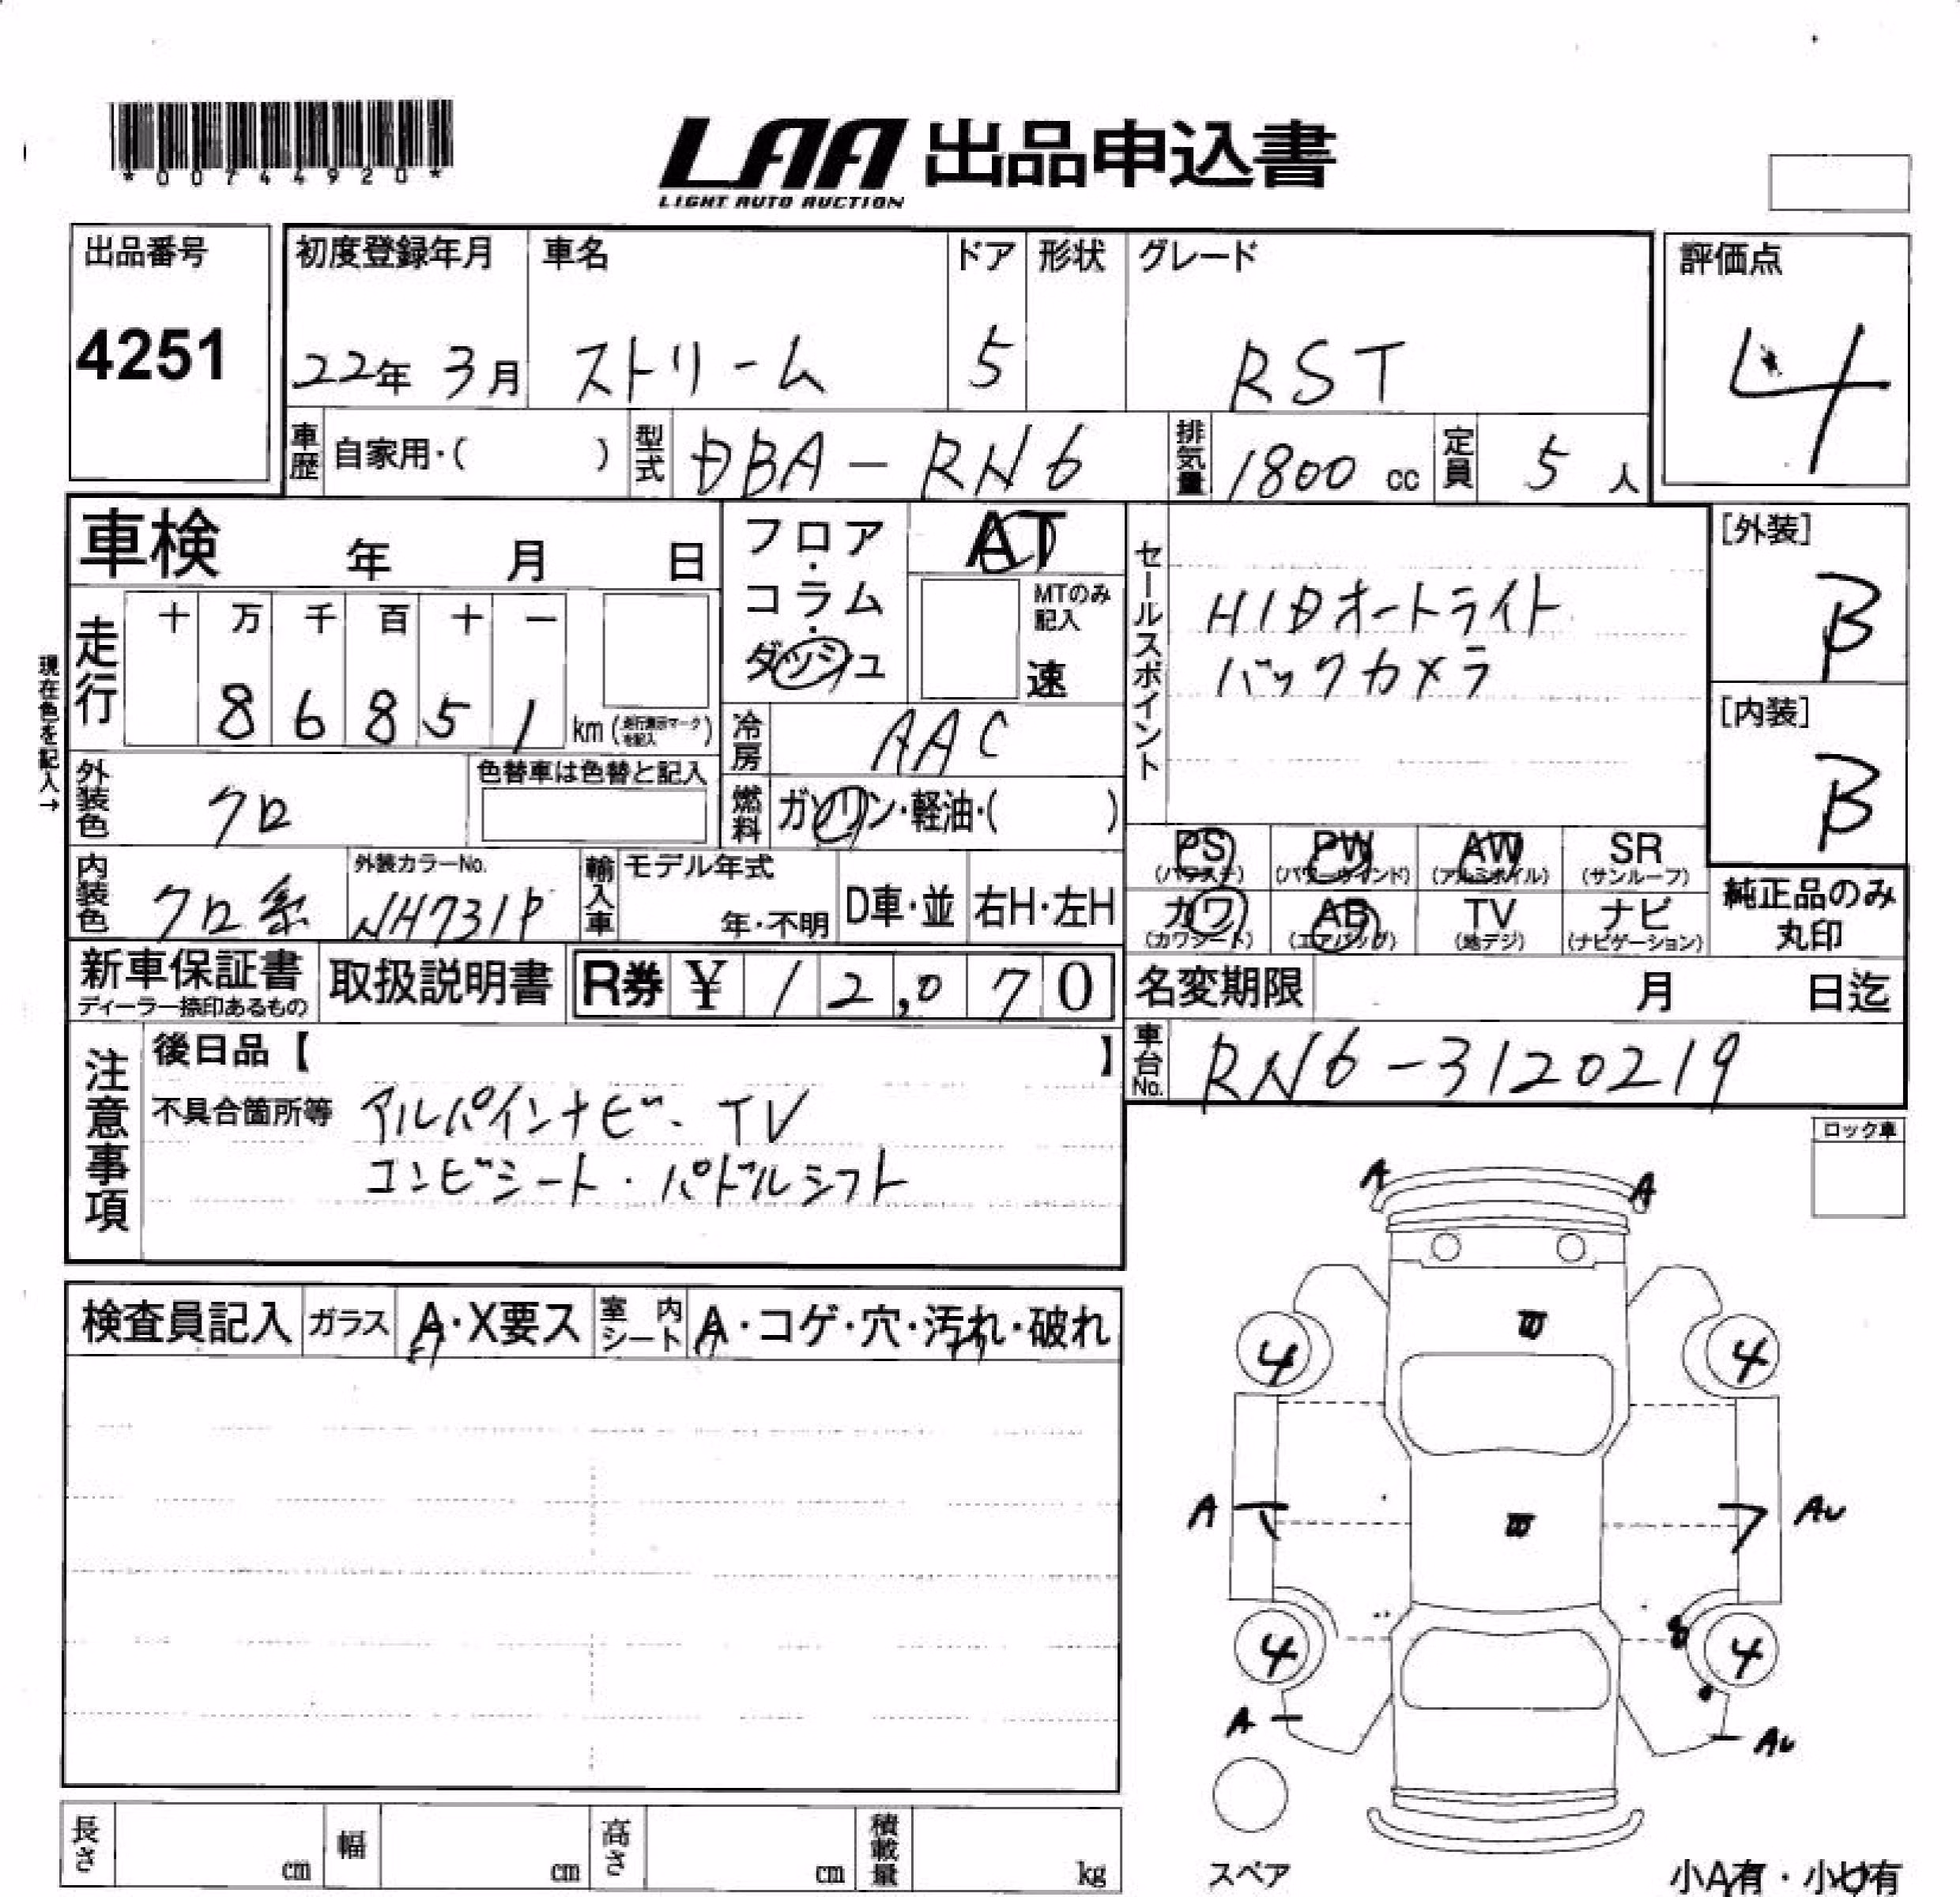 *00744920*
LAA 出品申込書
LIGHT AUTO AUCTION
出品番号
4251
初度登録年月
22年 3月
車名
ストリーム
ドア
5
形状
グレード
RST
評価点
4
車歴 自家用・( )
型式 DBA-RN6
排気量 1800 cc
定員 5 人
車検 年 月 日
フロア・コラム・ダッシュ
AT
MTのみ記入
速
セールスポイント
HIDオートライト
バックカメラ
[外装]
B
[内装]
B
現在色を記入→
走行
十 万 千 百 十 一
8 6 8 5 1 km (走行表示マークを記入)
冷房 AAC
外装色 クロ
色替車は色替と記入
燃料 ガソリン・軽油・( )
内装色 クロ系
外装カラーNo.
NH731P
輸入車
モデル年式
年・不明
D車・並
右H・左H
PS (パワステ)
PW (パワーウインド)
AW (アルミホイル)
SR (サンルーフ)
カワ (カワシート)
AB (エアバッグ)
TV (地デジ)
ナビ (ナビゲーション)
純正品のみ
丸印
新車保証書
ディーラー捺印あるもの
取扱説明書
R券 ¥ 12,070
名変期限 月 日迄
車台No. RN6-3120219
注意事項
後日品【 】
不具合箇所等 アルパインナビ・TV
コンビシート・パドルシフト
ロック車
検査員記入
ガラス A・X要ス
室内シート A・コゲ・穴・汚れ・破れ
A A
4 4
A AU
4 4
A AU
スペア
長さ cm
幅 cm
高さ cm
積載量 kg
小A有・小U有